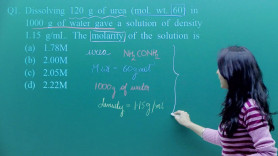 Q1. Dissolving 120 g of urea (mol. wt. 60) in
1000 g of water gave a solution of density
1.15 g/mL. The molarity of the solution is
(a) 1.78M
(b) 2.00M
(c) 2.05M
(d) 2.22M
urea NH2CONH2
M.wt = 60g/mol
1000g of water
density = 1.15g/ml